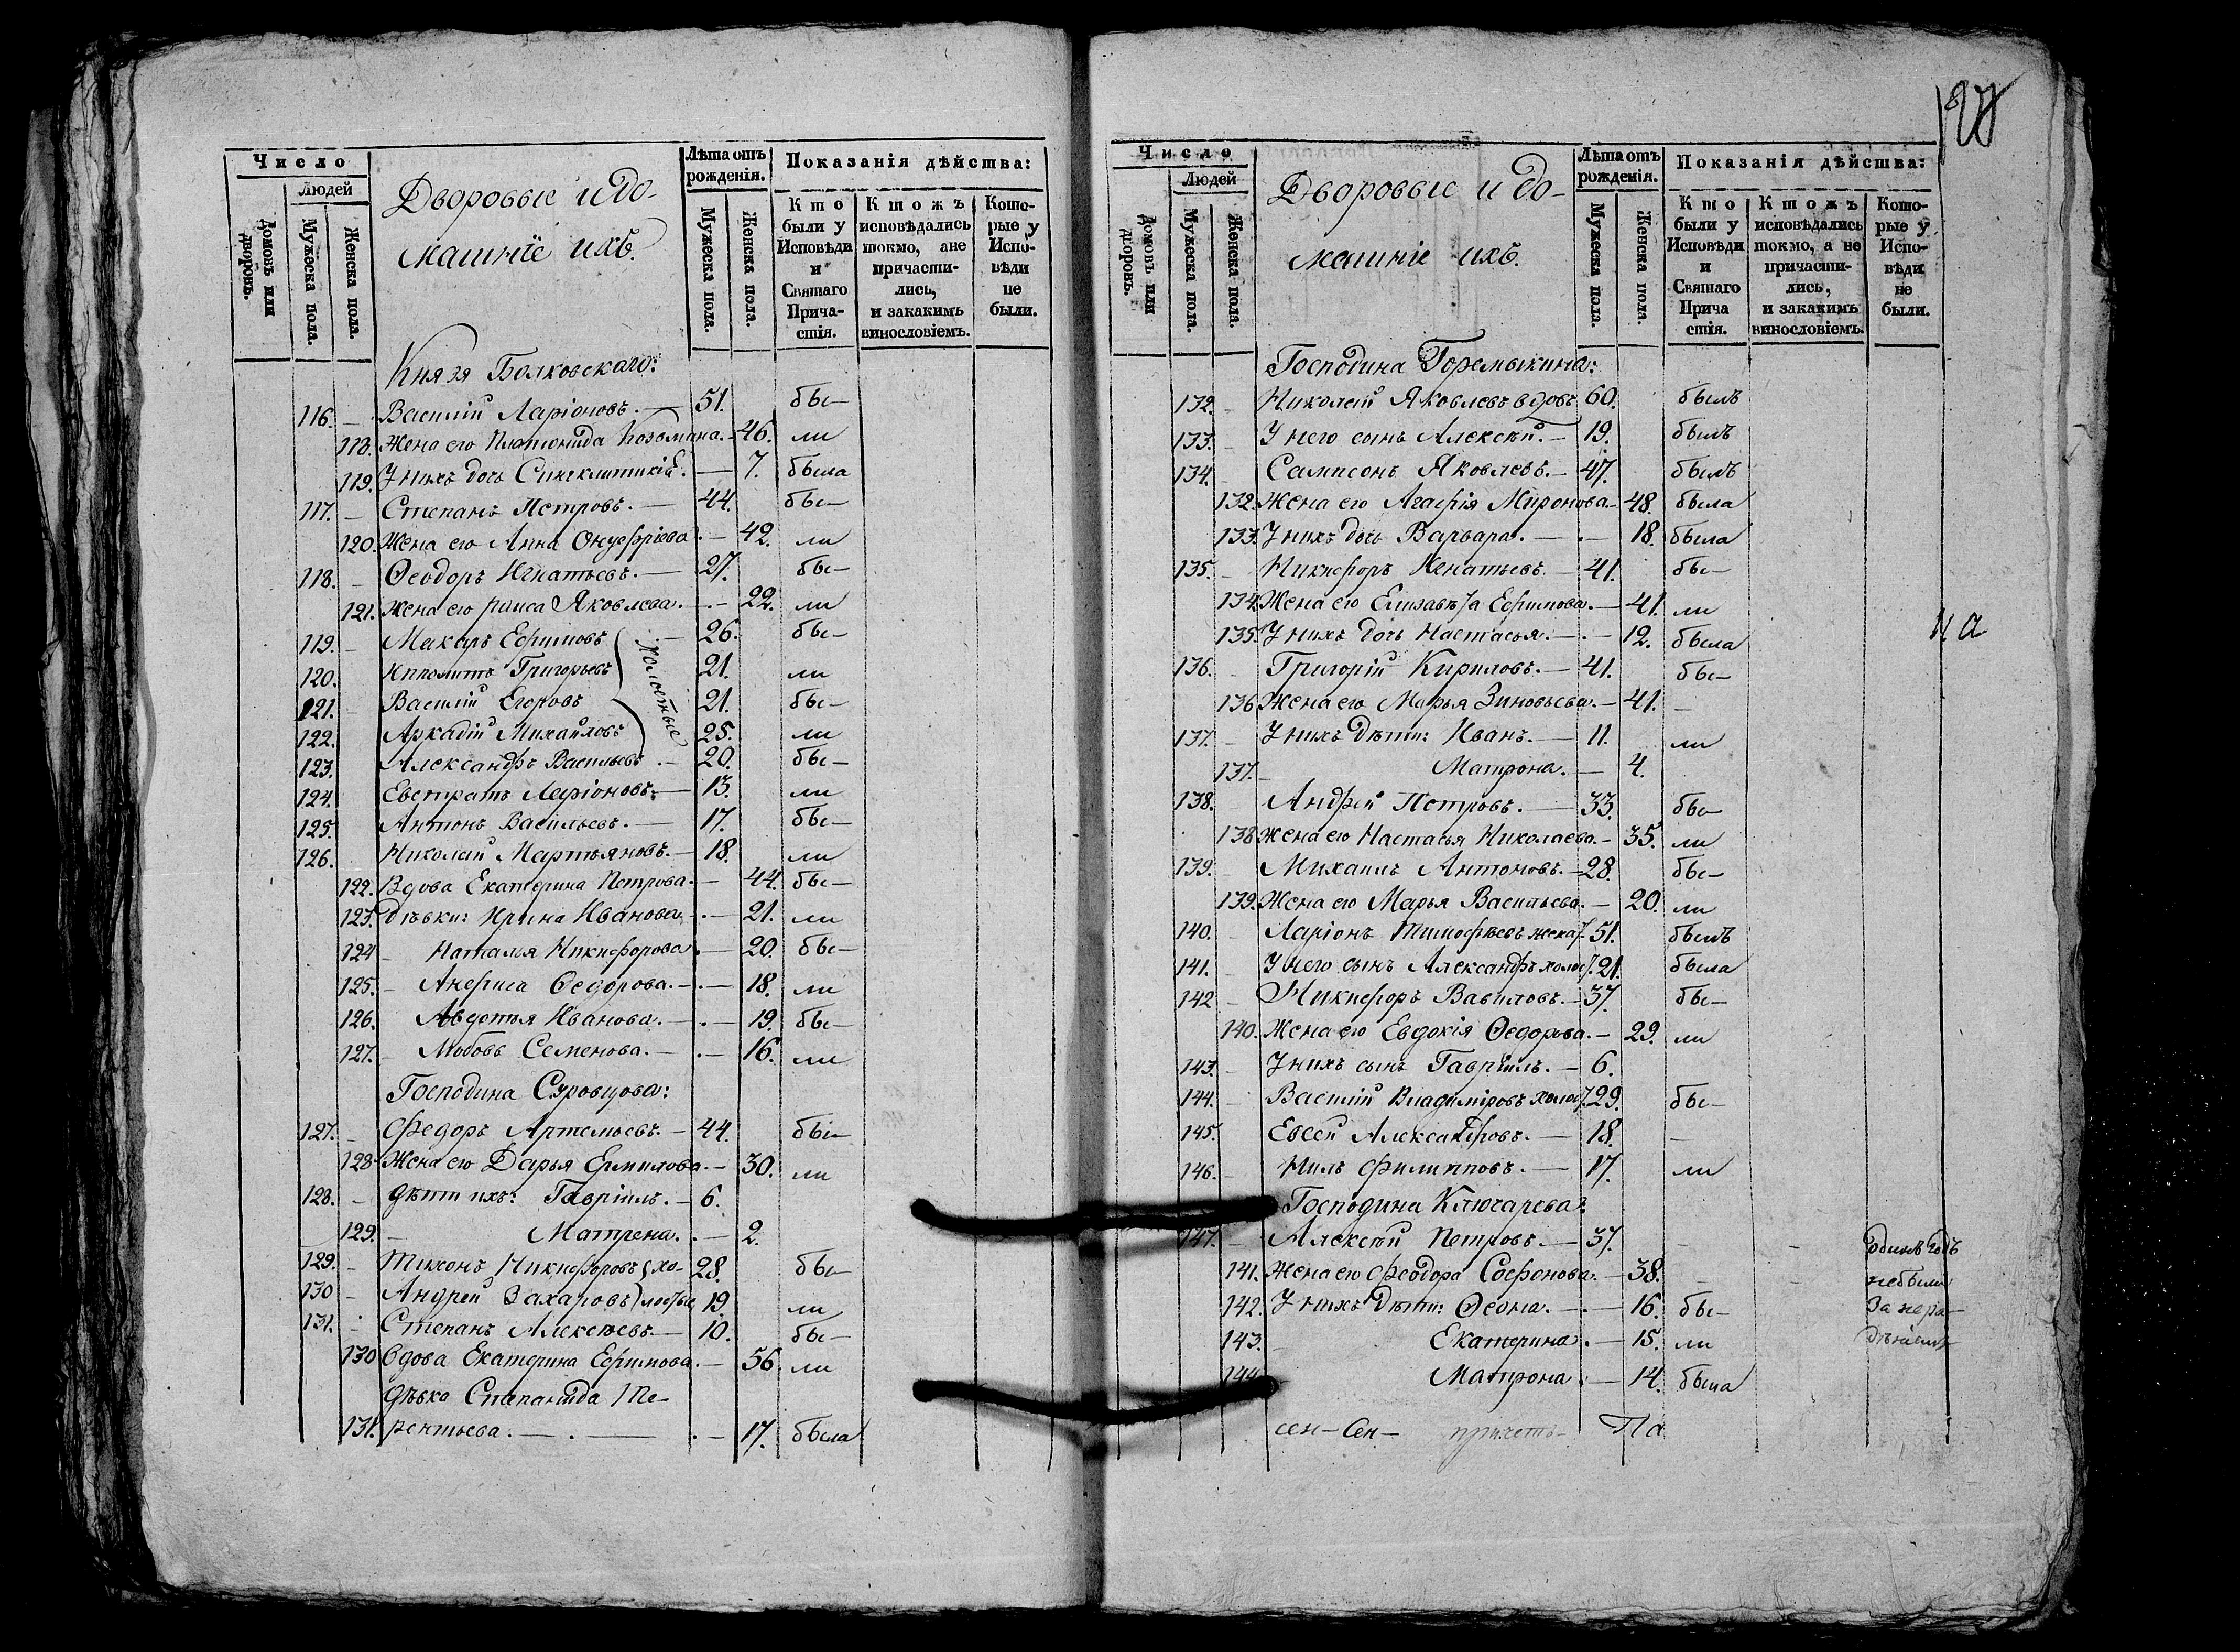 Число
Людей
домовъ или дворовъ.
Мужеска пола.
Женска пола.
Дворовые и до-
машніе ихъ.
Лѣта отъ рожденія.
Мужеска пола.
Женска пола.
Показанія дѣйства:
Кто были у Исповѣди и Святаго Прича-стія.
Ктожъ исповѣдались токмо, ане причасти-лись, и закакимъ винословіемъ.
Кото-рые у Испо-вѣди не были.
Князя Болховскаго:
116. – Василій Ларіоновъ. — 51. бы–
118. Жена его Козьмина. – 46. ли
119. У нихъ дочь — 7. была
117. – Степанъ Петровъ. — 44. бы–
120. Жена его Анна Онуфріева. – 42. ли
118. – Ѳеодоръ Игнатьевъ. — 27. бы–
121. Жена его Раиса Яковлева. – 22. ли
119. – Макаръ Ефимовъ холостые 26. бы–
120. Ипполитъ Григорьевъ 21. ли
121. Василій Егоровъ 21. бы–
122. Аркадій Михайловъ 25. ли
123. Александръ Васильевъ – 20. бы–
124. Евстратъ Ларіоновъ. — 13. ли
125. Антонъ Васильевъ. — 17. бы–
126. Николай Мартьяновъ. – 18. ли
122. Вдова Екатерина Петрова. – 44. бы–
123. дѣвки: Ирина Иванова. – 21. ли
124 – Наталья Никифорова. — 20. бы–
125. – Анфиса Ѳедорова. – 18. ли
126. Авдотья Иванова. – 19. бы–
127. – Любовь Семенова. – 16. ли
Господина Суровцова:
127. – Федоръ Артемьевъ. – 44. бы–
128 Жена его Дарья Ермилова. – 30. ли
128. – дѣти ихъ: Гавріилъ. – 6.
129. – Матрена. – 2.
129. – Тихонъ Никифоровъ хо- 28. бы–
130 – Андрей Захаровъ лостые 19. ли
131. – Степанъ Алексѣевъ. — 10. бы–
130 Вдова Екатерина Ефимова. – 56. ли
дѣвка Степанида Те-
131. рентьева. — 17. была
Число
Людей
домовъ или дворовъ.
Мужеска пола.
Женска пола.
Дворовые и до-
машніе ихъ.
Лѣта отъ рожденія.
Мужеска пола.
Женска пола.
Показанія дѣйства:
Кто были у Исповѣди и Святаго Прича стія.
Ктожъ исповѣдались токмо, а не причасти-лись, и закакимъ винословіемъ.
Кото-рые у Испо-вѣди не были.
Господина Горемыкина:
132. – Николай Яковлевъ вдовъ 60. былъ
133. – У него сынъ Алексѣй. – 19. былъ
134. – Сампсонъ Яковлевъ. – 47. былъ
132. Жена его Агафія Миронова. – 48. была
133. У нихъ дочь Варвара. — 18. была
135. – Никифоръ Игнатьевъ. – 41. бы–
134 Жена его Елизавета Ефимова. – 41. ли
135. У нихъ дочь Настасья. – 12. была
136. – Григорій Кириловъ. – 41. бы–
136 Жена его Марья Зиновьева. – 41. –
137. – У нихъ дѣти: Иванъ. — 11. ли
137. – Матрона. — 4.
138. – Андрей Петровъ. — 33. бы–
138 Жена его Настасья Николаева. – 35. ли
139. – Михаилъ Антоновъ. – 28. бы–
139. Жена его Марья Васильева. – 20. ли
140. – Ларіонъ Тимофѣевъ женат 51. былъ
141. – У него сынъ Александръ холос 21. была
142 – Никифоръ Вавиловъ. – 37. бы–
140. Жена его Евдокія Ѳедорова. – 29. ли
143. – У нихъ сынъ Гавріилъ. – 6.
144. – Василій Владиміровъ холос 29. бы–
145. Евсей Александровъ. — 18. –
146. – Нилъ Филипповъ. — 17. ли
Господина Ключарева:
147. – Алексѣй Петровъ. — 37. – – Одинъ годъ
141. Жена его Феодора Софонова. – 38. – – небыли
142. У нихъ дѣти: Ѳеона. – 16. бы– За нера–
143. – Екатерина. – 15. ли дѣніемъ
144. Матрона. – 14. была
на
сен– Сен– причет–